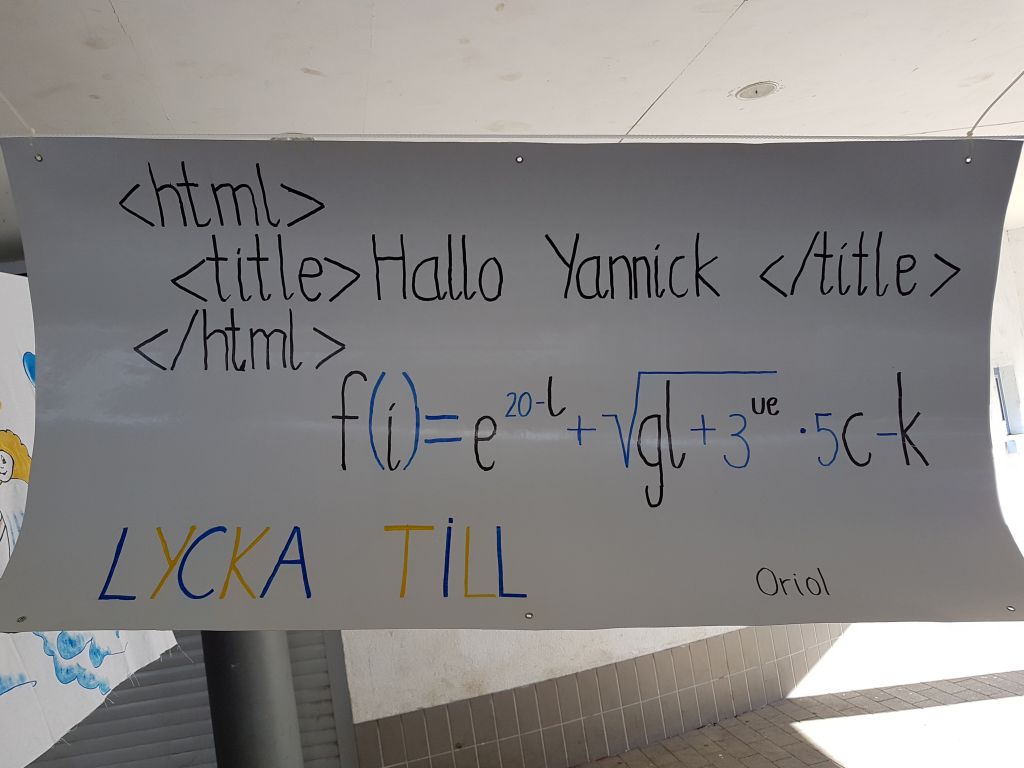 <html>
<title>Hallo Yannick </title>
</html>
f(i)=e^{20-l}+√(gl+3^{ue})·5c-k
LYCKA TiLL
Oriol